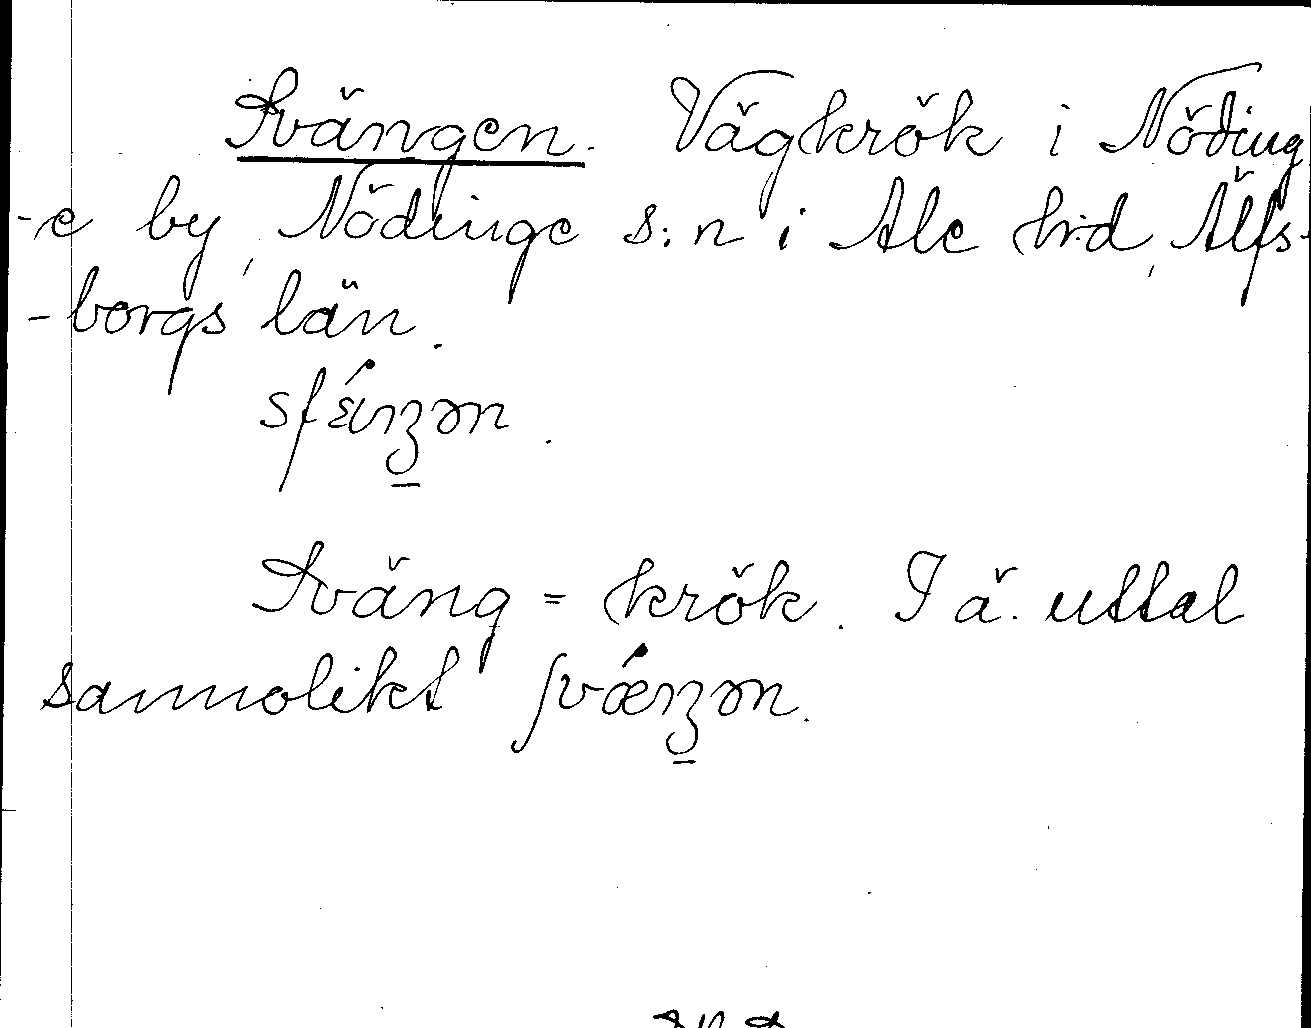 Svängen. Vägkrök i Nöding
-e by, Nödinge s:n i Ale h:d, Älfs-
-borgs län.
Sväng = krök. I ä. uttal
sannolikt